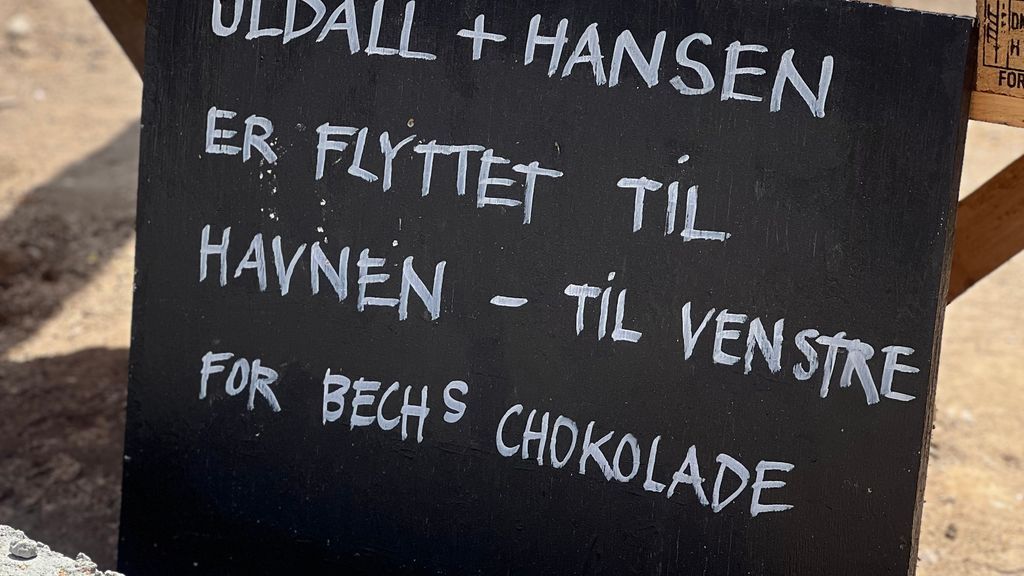 ULDALL + HANSEN
ER FLYTTET TIL
HAVNEN - TIL VENSTRE
FOR BECHS CHOKOLADE
FOR